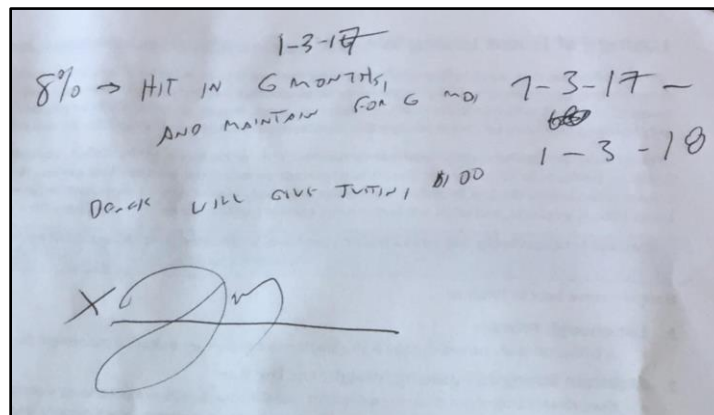 1-3-17
8% → HIT IN 6 MONTHS, 7-3-17 –
AND MAINTAIN FOR 6 MO, 1-3-18
DEREK WILL GIVE JUSTIN, $100
X